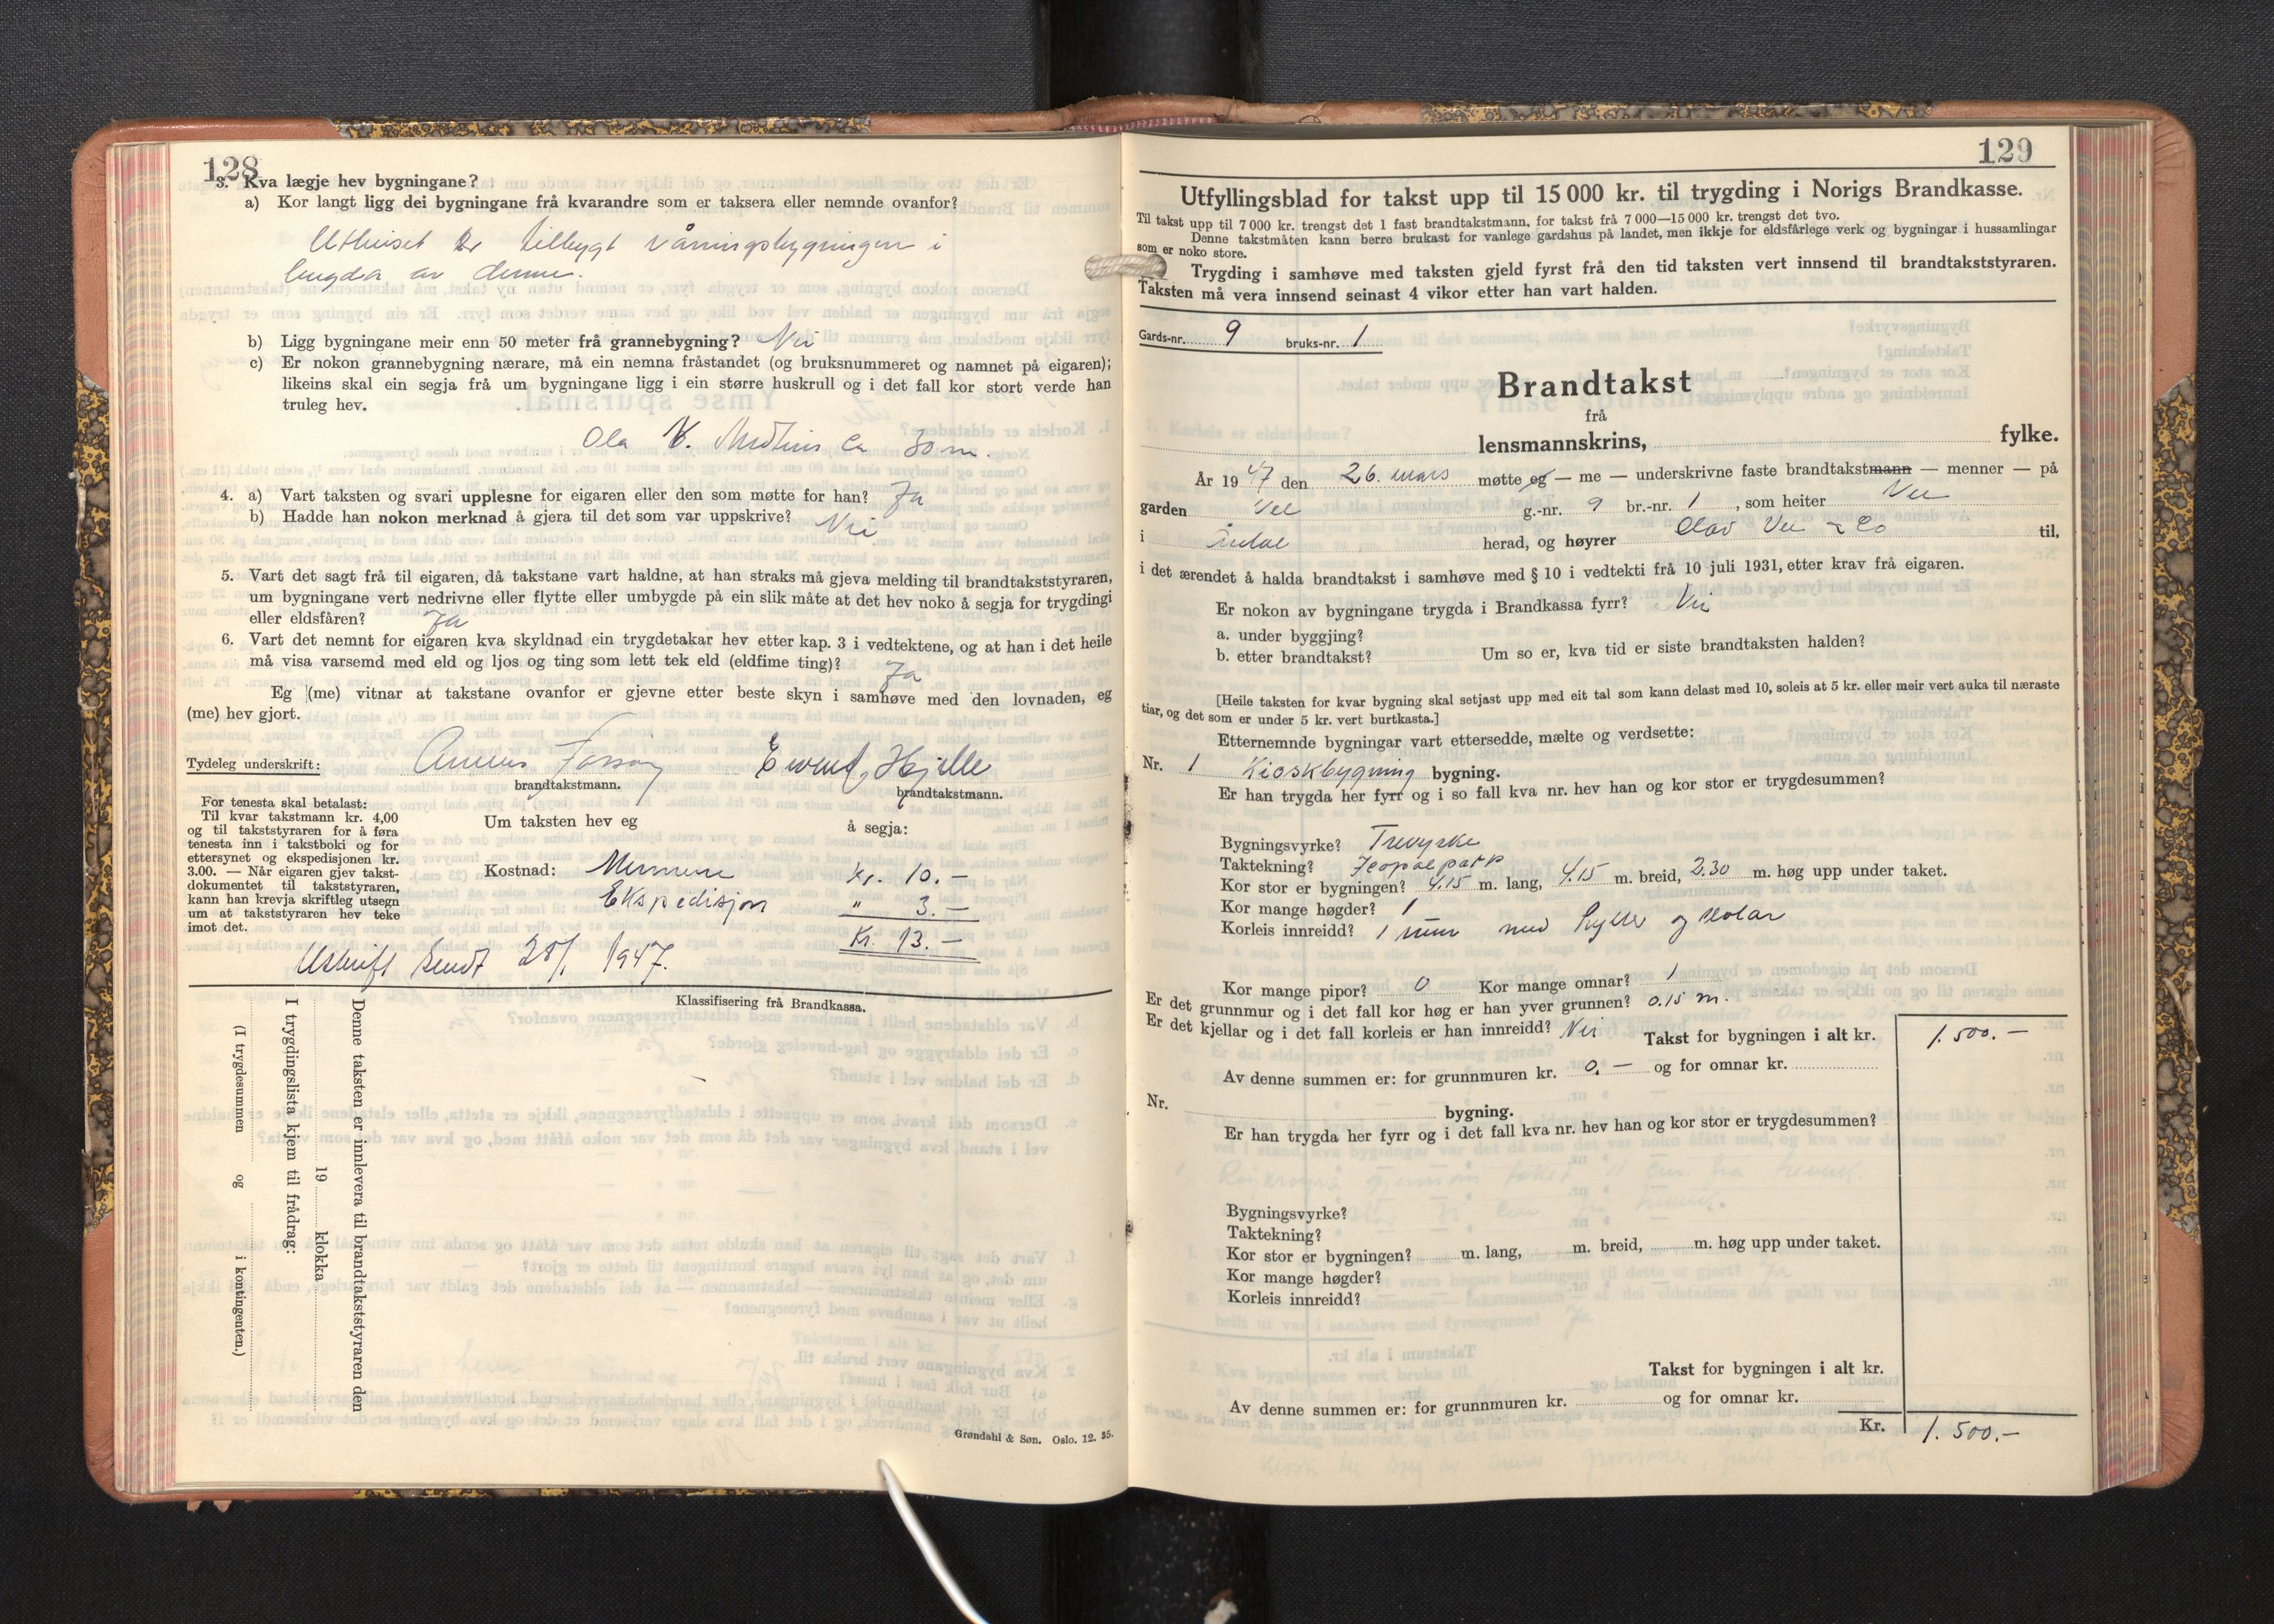 128
3. Kva lægje hev bygningane?
a) Kor langt ligg dei bygningane frå kvarandre som er taksera eller nemnde ovanfor?
Uthuset er tilbygt våningsbygningen i
lengda av denne.
b) Ligg bygningane meir enn 50 meter frå grannebygning? Nei
c) Er nokon grannebygning nærare, må ein nemna fråstandet (og bruksnummeret og namnet på eigaren);
likeins skal ein segja frå um bygningane ligg i ein større huskrull og i det fall kor stort verde han
truleg hev.
Ola ca 30 m.
4. a) Vart taksten og svari upplesne for eigaren eller den som møtte for han? Ja
b) Hadde han nokon merknad å gjera til det som var uppskrive? Nei
5. Vart det sagt frå til eigaren, då takstane vart haldne, at han straks må gjeva melding til brandtakststyraren,
um bygningane vert nedrivne eller flytte eller umbygde på ein slik måte at det hev noko å segja for trygdingi
eller eldsfåren? Ja
6. Vart det nemnt for eigaren kva skyldnad ein trygdetakar hev etter kap. 3 i vedtektene, og at han i det heile
må visa varsemd med eld og ljos og ting som lett tek eld (eldfime ting)? Ja
Eg (me) vitnar at takstane ovanfor er gjevne etter beste skyn i samhøve med den lovnaden, eg
(me) hev gjort.
Tydeleg underskrift: Hjelle
brandtakstmann. brandtakstmann.
For tenesta skal betalast:
Til kvar takstmann kr. 4,00
og til takststyraren for å føra
tenesta inn i takstboki og for
ettersynet og ekspedisjonen kr.
3.00. — Når eigaren gjev takst-
dokumentet til takststyraren,
kann han krevja skriftleg utsegn
um at takststyraren hev teke
imot det.
Um taksten hev eg å segja:
Kostnad: Mennene kr. 10.—
Ekspedisjon " 3.—
Kr. 13.—
Utskrift sendt 28/ 1947.
Klassifisering frå Brandkassa.
Denne taksten er innlevera til brandtakststyraren den
19 klokka
I trygdingslista kjem til frådrag:
(I trygdesummen og i kontingenten.)
Grøndahl & Søn. Oslo. 12. 35.
129
Utfyllingsblad for takst upp til 15 000 kr. til trygding i Norigs Brandkasse.
Til takst upp til 7 000 kr. trengst det 1 fast brandtakstmann, for takst frå 7 000—15 000 kr. trengst det tvo.
Denne takstmåten kann berre brukast for vanlege gardshus på landet, men ikkje for eldsfårlege verk og bygningar i hussamlingar
som er noko store.
Trygding i samhøve med taksten gjeld fyrst frå den tid taksten vert innsend til brandtakststyraren.
Taksten må vera innsend seinast 4 vikor etter han vart halden.
Gards-nr. 9 bruks-nr. 1
Brandtakst
frå
lensmannskrins, fylke.
År 1947 den 26. mars møtte eg — me — underskrivne faste brandtakstmann — menner — på
garden Vee g.-nr. 9 br.-nr. 1, som heiter Vee
i herad, og høyrer Olav Vee & Co til,
i det ærendet å halda brandtakst i samhøve med § 10 i vedtekti frå 10 juli 1931, etter krav frå eigaren.
Er nokon av bygningane trygda i Brandkassa fyrr? Nei
a. under byggjing?
b. etter brandtakst? Um so er, kva tid er siste brandtaksten halden?
[Heile taksten for kvar bygning skal setjast upp med eit tal som kann delast med 10, soleis at 5 kr. eller meir vert auka til næraste
tiar, og det som er under 5 kr. vert burtkasta.]
Etternemnde bygningar vart ettersedde, mælte og verdsette:
Nr. 1 Kioskbygning bygning.
Er han trygda her fyrr og i so fall kva nr. hev han og kor stor er trygdesummen?
Bygningsvyrke? Trevyrke
Taktekning? Icopalpapp
Kor stor er bygningen? 4.15 m. lang, 4.15 m. breid, 2.30 m. høg upp under taket.
Kor mange høgder? 1
Korleis innreidd? 1 rum med hyller og stolar
Kor mange pipor? 0 Kor mange omnar? 1
Er det grunnmur og i det fall kor høg er han yver grunnen? 0.15 m.
Er det kjellar og i det fall korleis er han innreidd? Nei Takst for bygningen i alt kr. 1.500.—
Av denne summen er: for grunnmuren kr. 0.— og for omnar kr.
Nr. bygning.
Er han trygda her fyrr og i det fall kva nr. hev han og kor stor er trygdesummen?
Bygningsvyrke?
Taktekning?
Kor stor er bygningen? m. lang, m. breid, m. høg upp under taket.
Kor mange høgder?
Korleis innreidd?
Takst for bygningen i alt kr.
Av denne summen er: for grunnmuren kr. og for omnar kr.
Kr. 1.500.—